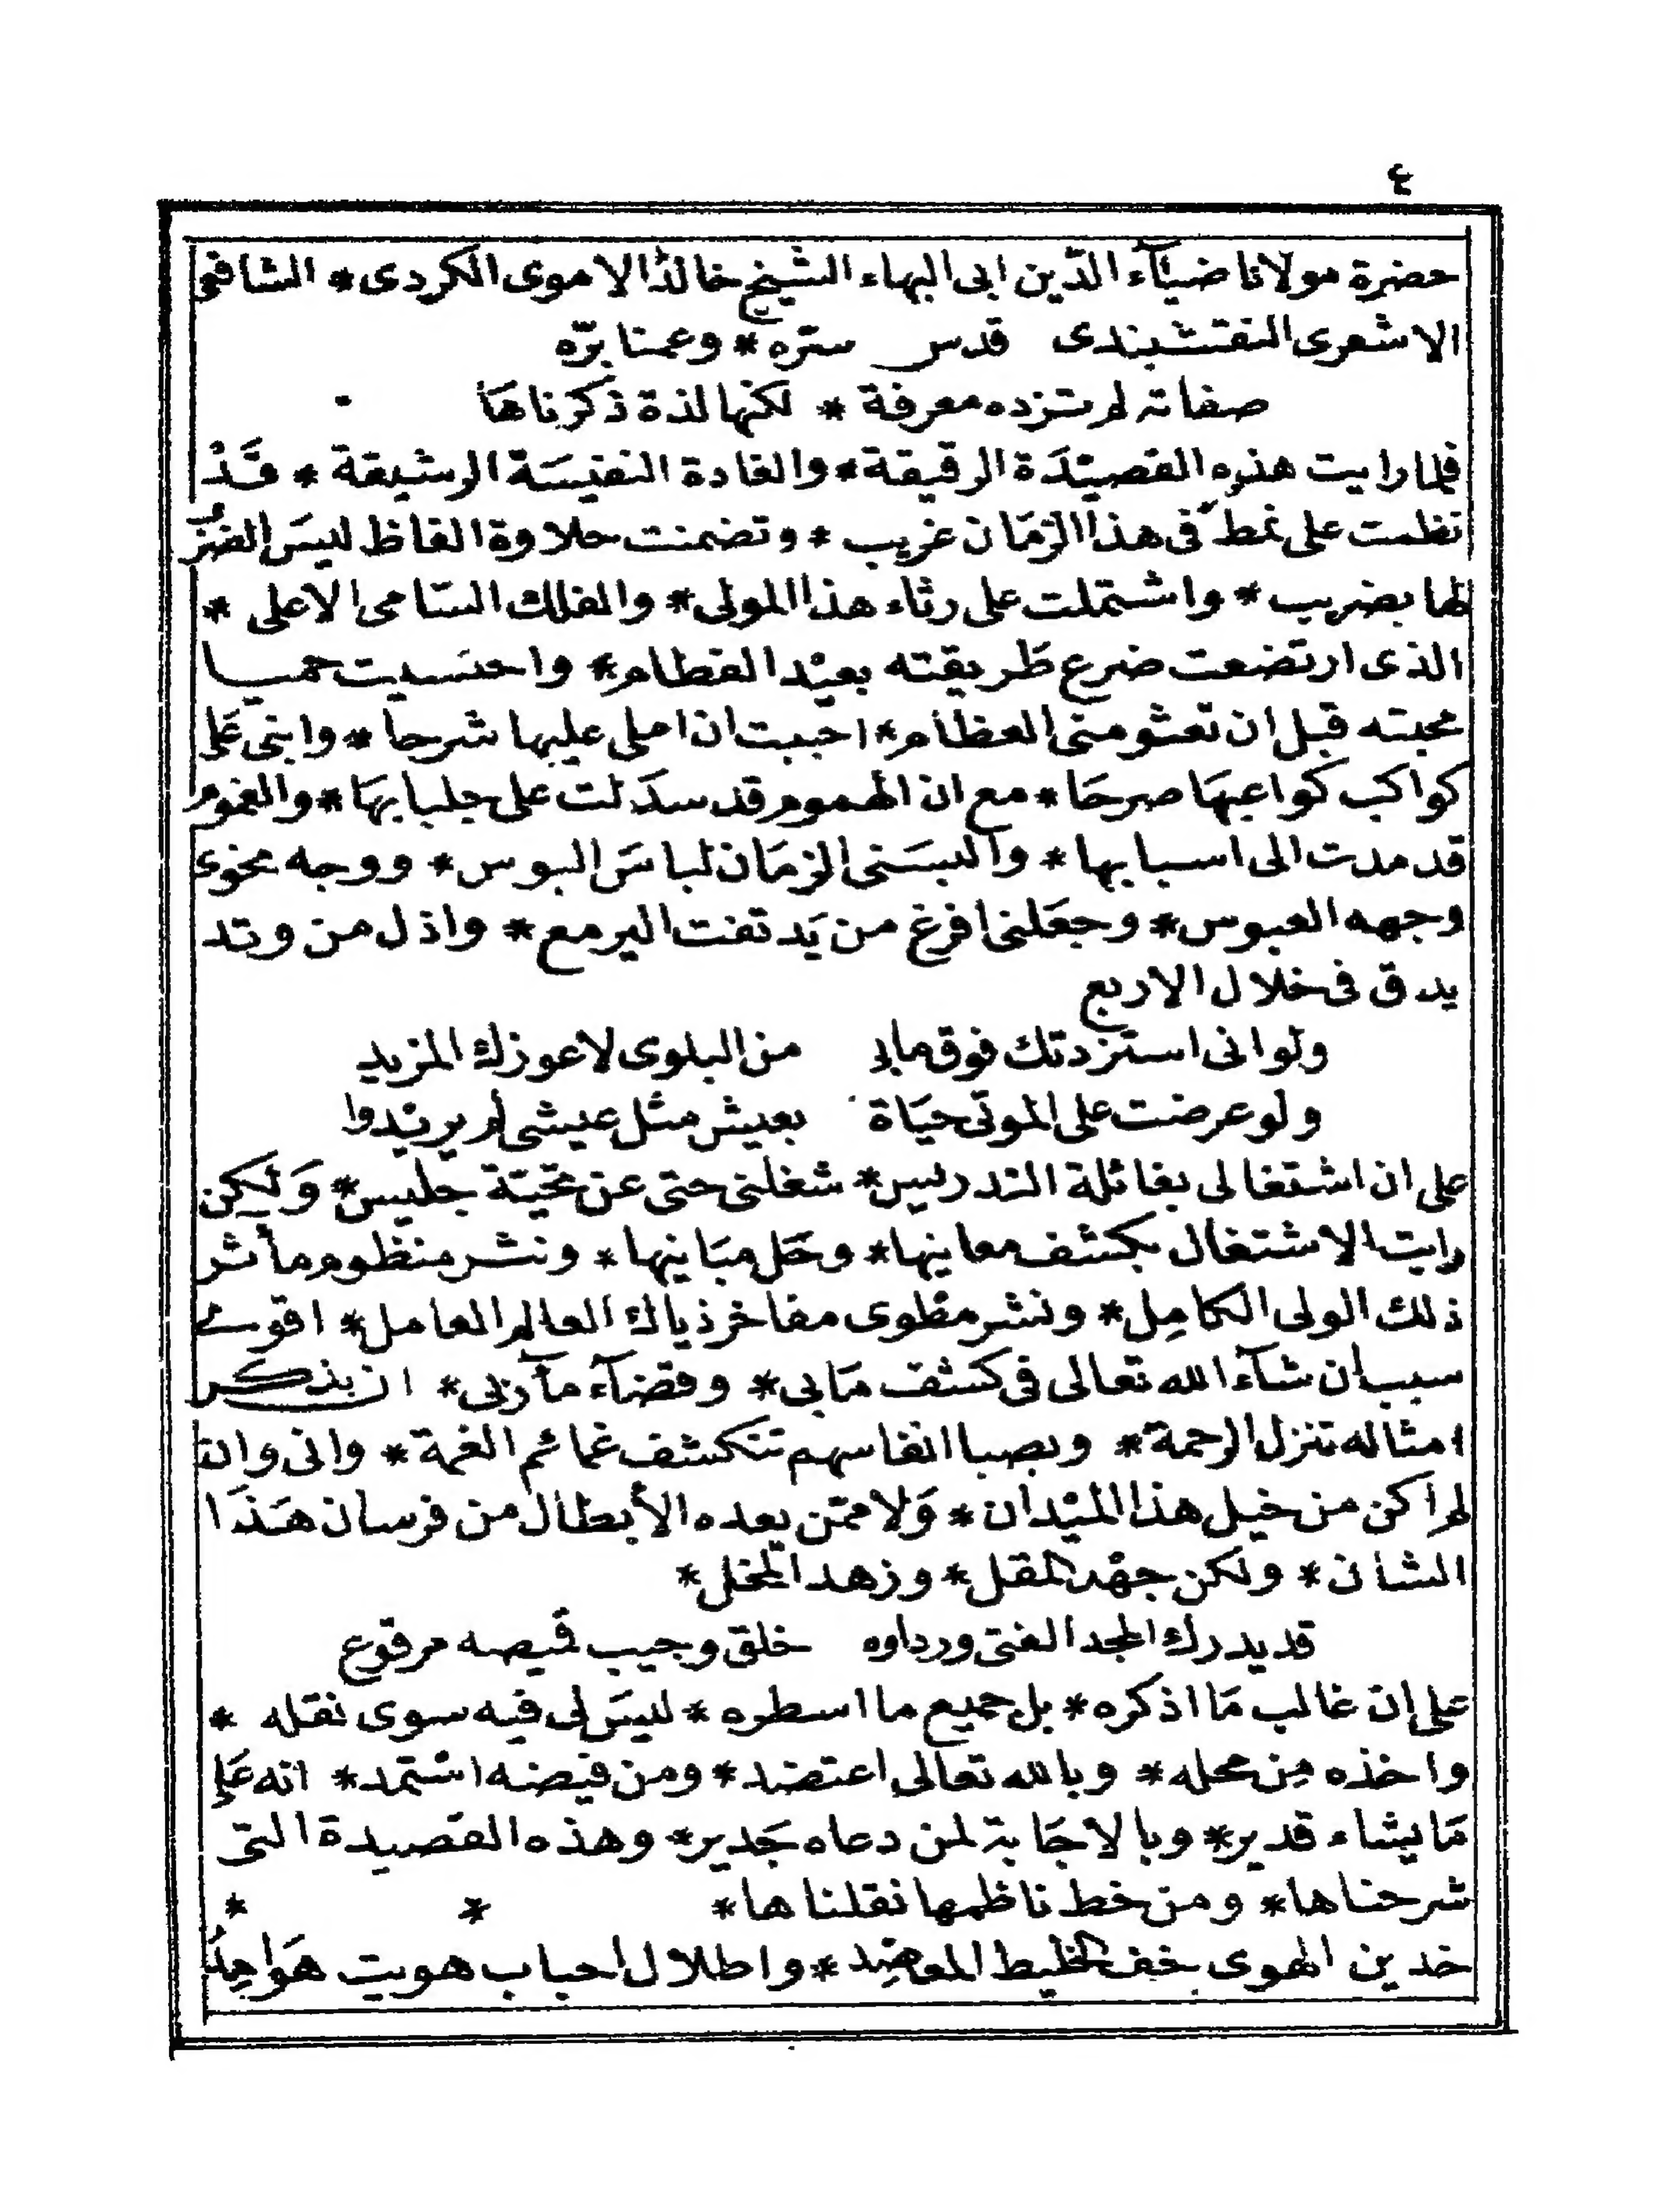 ٤
حضرة مولانا ضيآء الدّين ابى البهاء الشيخ خالد الاموى الكردى * الشافعى
الاشعرى النقشبندى قدس سرّه * وعمنا برّه
صفاته لم تزده معرفة * لكنها لذة ذكرناهَا
فلما رايت هذه القصيْدَة الرقيقة * والغادة النفيسَة الرشيقة * قَدْ
نظمت على نمط فى هذا الزمَان غريب * وتضمنت حلاوة الفاظ ليسَ الضرَبُ
لها بضريب * واشتملت على رثاء هذا المولى * والفلك السّامى الاعلى *
الذى ارتضعت ضرع طريقته بعيْد الفطام * واحتسيت حميا
محبته قبل ان تعشو منى العظام * احببت ان املى عليها شرحا * وابنى عَلى
كواكب كواعبهَا صرحَا * مع ان الهموم قد سدَلت على جلبابهَا * والغموم
قد مدت الى اسبابها * والبسَنى الزمَان لباسَ البوس * ووجه نحوى
وجهه العبوس * وجعَلنى افرغ من يَد تفت اليرمع * واذل من وتد
يدق فى خلال الاربع
ولو انى استزدتك فوق مابى من البلوى لاعوزك المزيد
ولو عرضت على الموتى حيَاة بعيش مثل عيشى لم يريْدوا
على ان اشتغالى بغائلة التدريس * شغلنى حتى عن تحيّة جليس * وَلكِن
رايت الاشتغال بكشف معانيها * وحَل مبَانيها * ونشر منظوم مأثر
ذلك الولى الكامِل * ونشر مطوى مفاخر ذياك العالم العامل * اقوى
سبب ان شآء الله تعالى فى كشف مَابى * وقضآء مآربى * اذ بذكر
امثاله تنزل الرحمة * وبصبا انفاسهم تنكشف غمائم الغمة * وانى وان
لم أكن من خيل هذا الميْدان * وَلا ممّن يعده الأبطال من فرسان هَذَا
الشان * ولكن جهْد المقل * وزهد المخل *
قد يدرك المجد الفتى ورداوه خلق وجيب قميصه مرقوع
على ان غالب مَا اذكره * بل جميع ما اسطره * ليسَ لى فيه سوى نقله *
واخذه مِن محله * وبالله تعالى اعتضد * ومن فيضه استمد * انه عَلى
مَا يشاء قدير * وبالاجَابة لمن دعاه جَدير * وهذه القصيدة التى
شرحناها * ومن خط ناظمها نقلناها * * *
خدين الهوى خف الخليط المعاضِد * واطلال احباب هويت هَوامِدُ